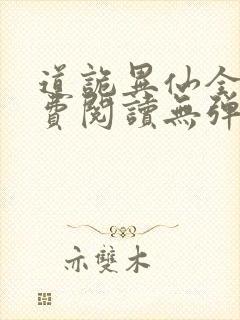 道詭異仙全
費閱讀無彈
亦雙木